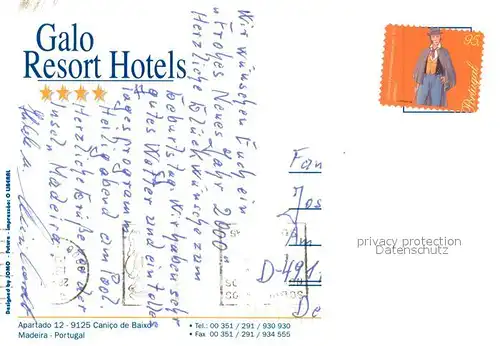 Galo
Resort Hotels
Wir wünschen Euch ein
„frohes Neues Jahr 2000"
Herzliche Glückwünsche zum
Geburtstag. Wir haben sehr
gutes Wetter und ein tolles
Tagesprogramm.
Heiligabend am Pool.
Herzliche Grüße von der
Insel Madeira.
Portugal
Fam
Jos
Am
D-491
De
privacy protection
Datenschutz
Designed by JOMO
Apartado 12 - 9125 Caniço de Baixo
Madeira - Portugal
• Tel.: 00 351 / 291 / 930 930
• Fax 00 351 / 291 / 934 555